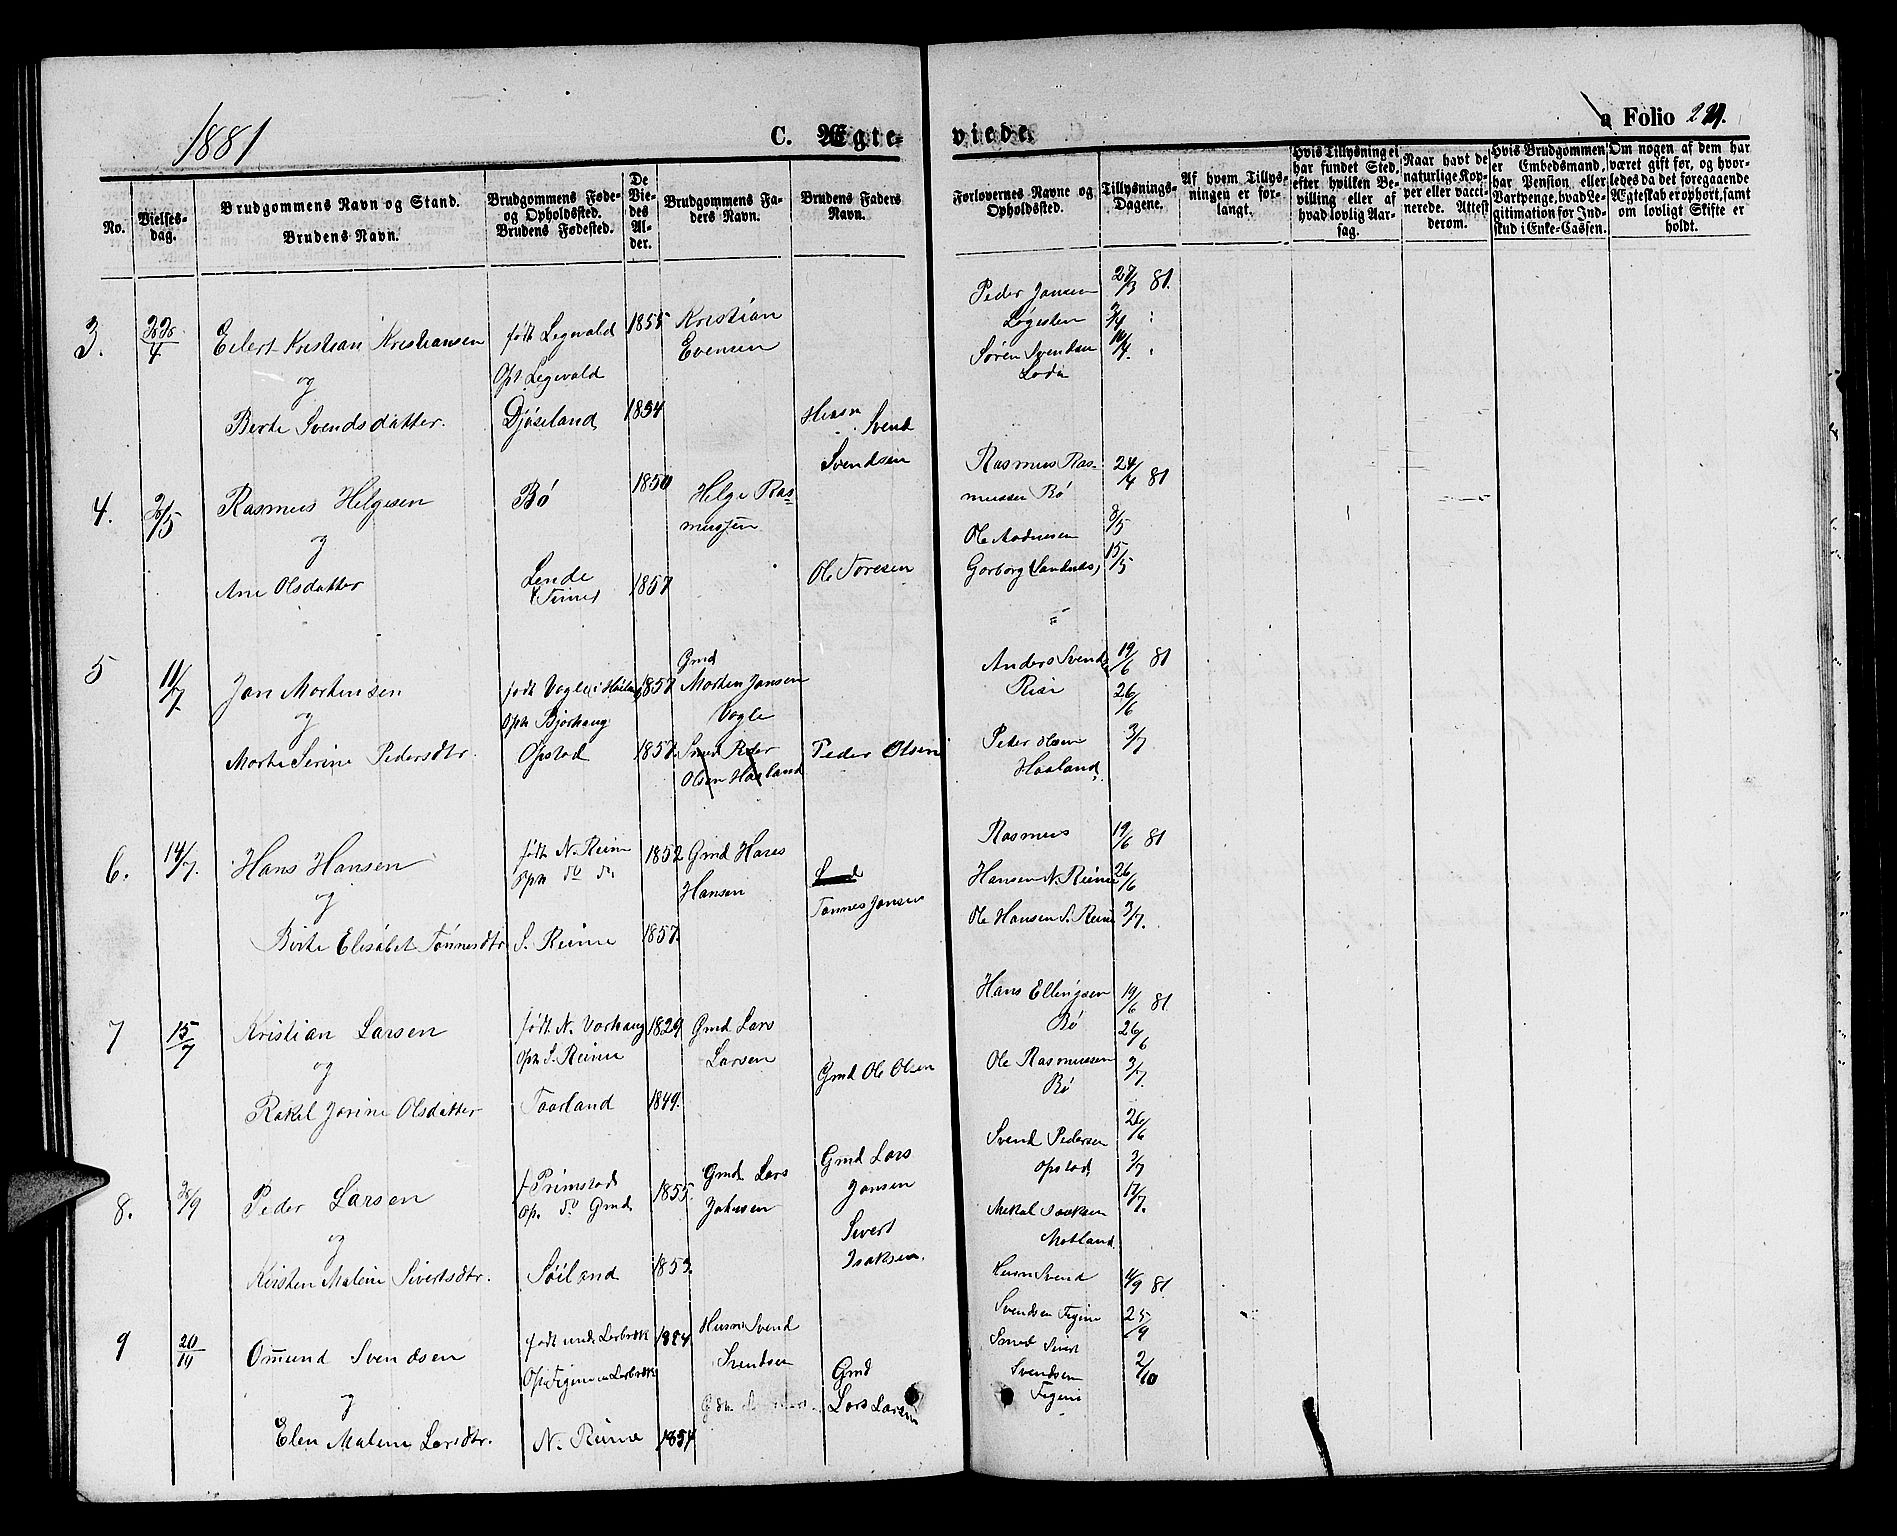 1881
C. Ægte-
viede.
a Folio
No.
Vielses-
dag.
Brudgommens Navn og Stand.
Brudens Navn.
Brudgommens Føde-
og Opholdssted.
Brudens Fødested.
De
Vie-
des
Al-
der.
Brudgommens Fa-
ders Navn.
Brudens Faders
Navn.
Forlovernes Navne og
Opholdssted.
Tillysnings-
Dagene.
Af hvem Tillys-
ningen er for-
langt.
Hvis Tillysning ei
har fundet Sted,
efter hvilken Be-
villing eller af
hvad lovlig Aar-
sag.
Naar havt de
naturlige Kop-
per eller vacci-
nerede. Attest
derom.
Hvis Brudgommen
er Embedsmand,
har Pension eller
Vartpenge, hvad Le-
gitimation for Ind-
skud i Enke-Cassen.
Om nogen af dem har
været gift før, og hvor-
ledes da det foregaaende
Ægteskab er ophørt, samt
om lovligt Skifte er
holdt.
3.
Eilert Kristian Kristiansen
og
Berte Svendsdatter.
født Legevald
Oph Legevald
Djøseland
1855
1854
Kristian
Evensen
Husm
Svend
Svendsen
Peder Jansen
Løgesten
Søren Svendsen
Loda
27/3 81.
3/4
10/4
4.
Rasmus Helgesen
og
Ane Olsdatter
Bø
Lende
i Time
1850
1857
Helge Ras-
mussen
Ole Toresen
Rasmus Ras-
mussen Bø
Ole Aadnesen
Garborg (Sandnes)
24/4 81
8/5
15/5
5
11/7
Jan Mortensen
og
Marte Serine Pedersdtr.
født Vagle i Høiland
Oph Bjorhaug
Opstad
1857
1857
Gmd
Morten Jansen
Vagle
Smed Peder
Olsen Haaland
Peder Olsen
Anders Svends
Risa
Peder Olsen
Haaland
19/6 81
26/6
3/7
6.
14/7.
Hans Hansen
og
Berte Elisabet Tønnesdtr.
født N. Reime
Oph do do.
S. Reime
1852
1857.
Gmd Hans
Hansen
Tønnes Jansen
Rasmus
Hansen N. Reime
Ole Hansen S. Reime
19/6 81
26/6
3/7.
7
15/7
Kristian Larsen
og
Rakel Jorine Olsdatter
født N. Varhaug
Oph S. Reime
Taarland
1829
1849.
Gmd Lars
Larsen
Gmd Ole Olsen
Hans Ellingsen
Bø
Ole Rasmussen
Bø
19/6 81
26/6
3/7.
8.
Peder Larsen
og
Kirsten Malene Sivertsdtr.
f. Primstad
Op. do Gmd
Søiland
1855.
1853.
Gmd Lars
Jansen
Gmd Lars
Jansen
Sivert
Isaksen.
Svend Pedersen
Opstad
Mikal Isaksen
Motland
26/6
3/7
17/7.
9
20/10
Omund Svendsen
og
Elen Malene Larsdtr.
født und. Lerbrek
Oph Figene u. Lerbrek
N. Reime
1854
1854
Husm Svend
Svendsen
Gmd
Lars Larsen
Husm Svend
Svendsen Figene
Smed Sivert
Svendsen
Figene
4/9 81
25/9
2/10